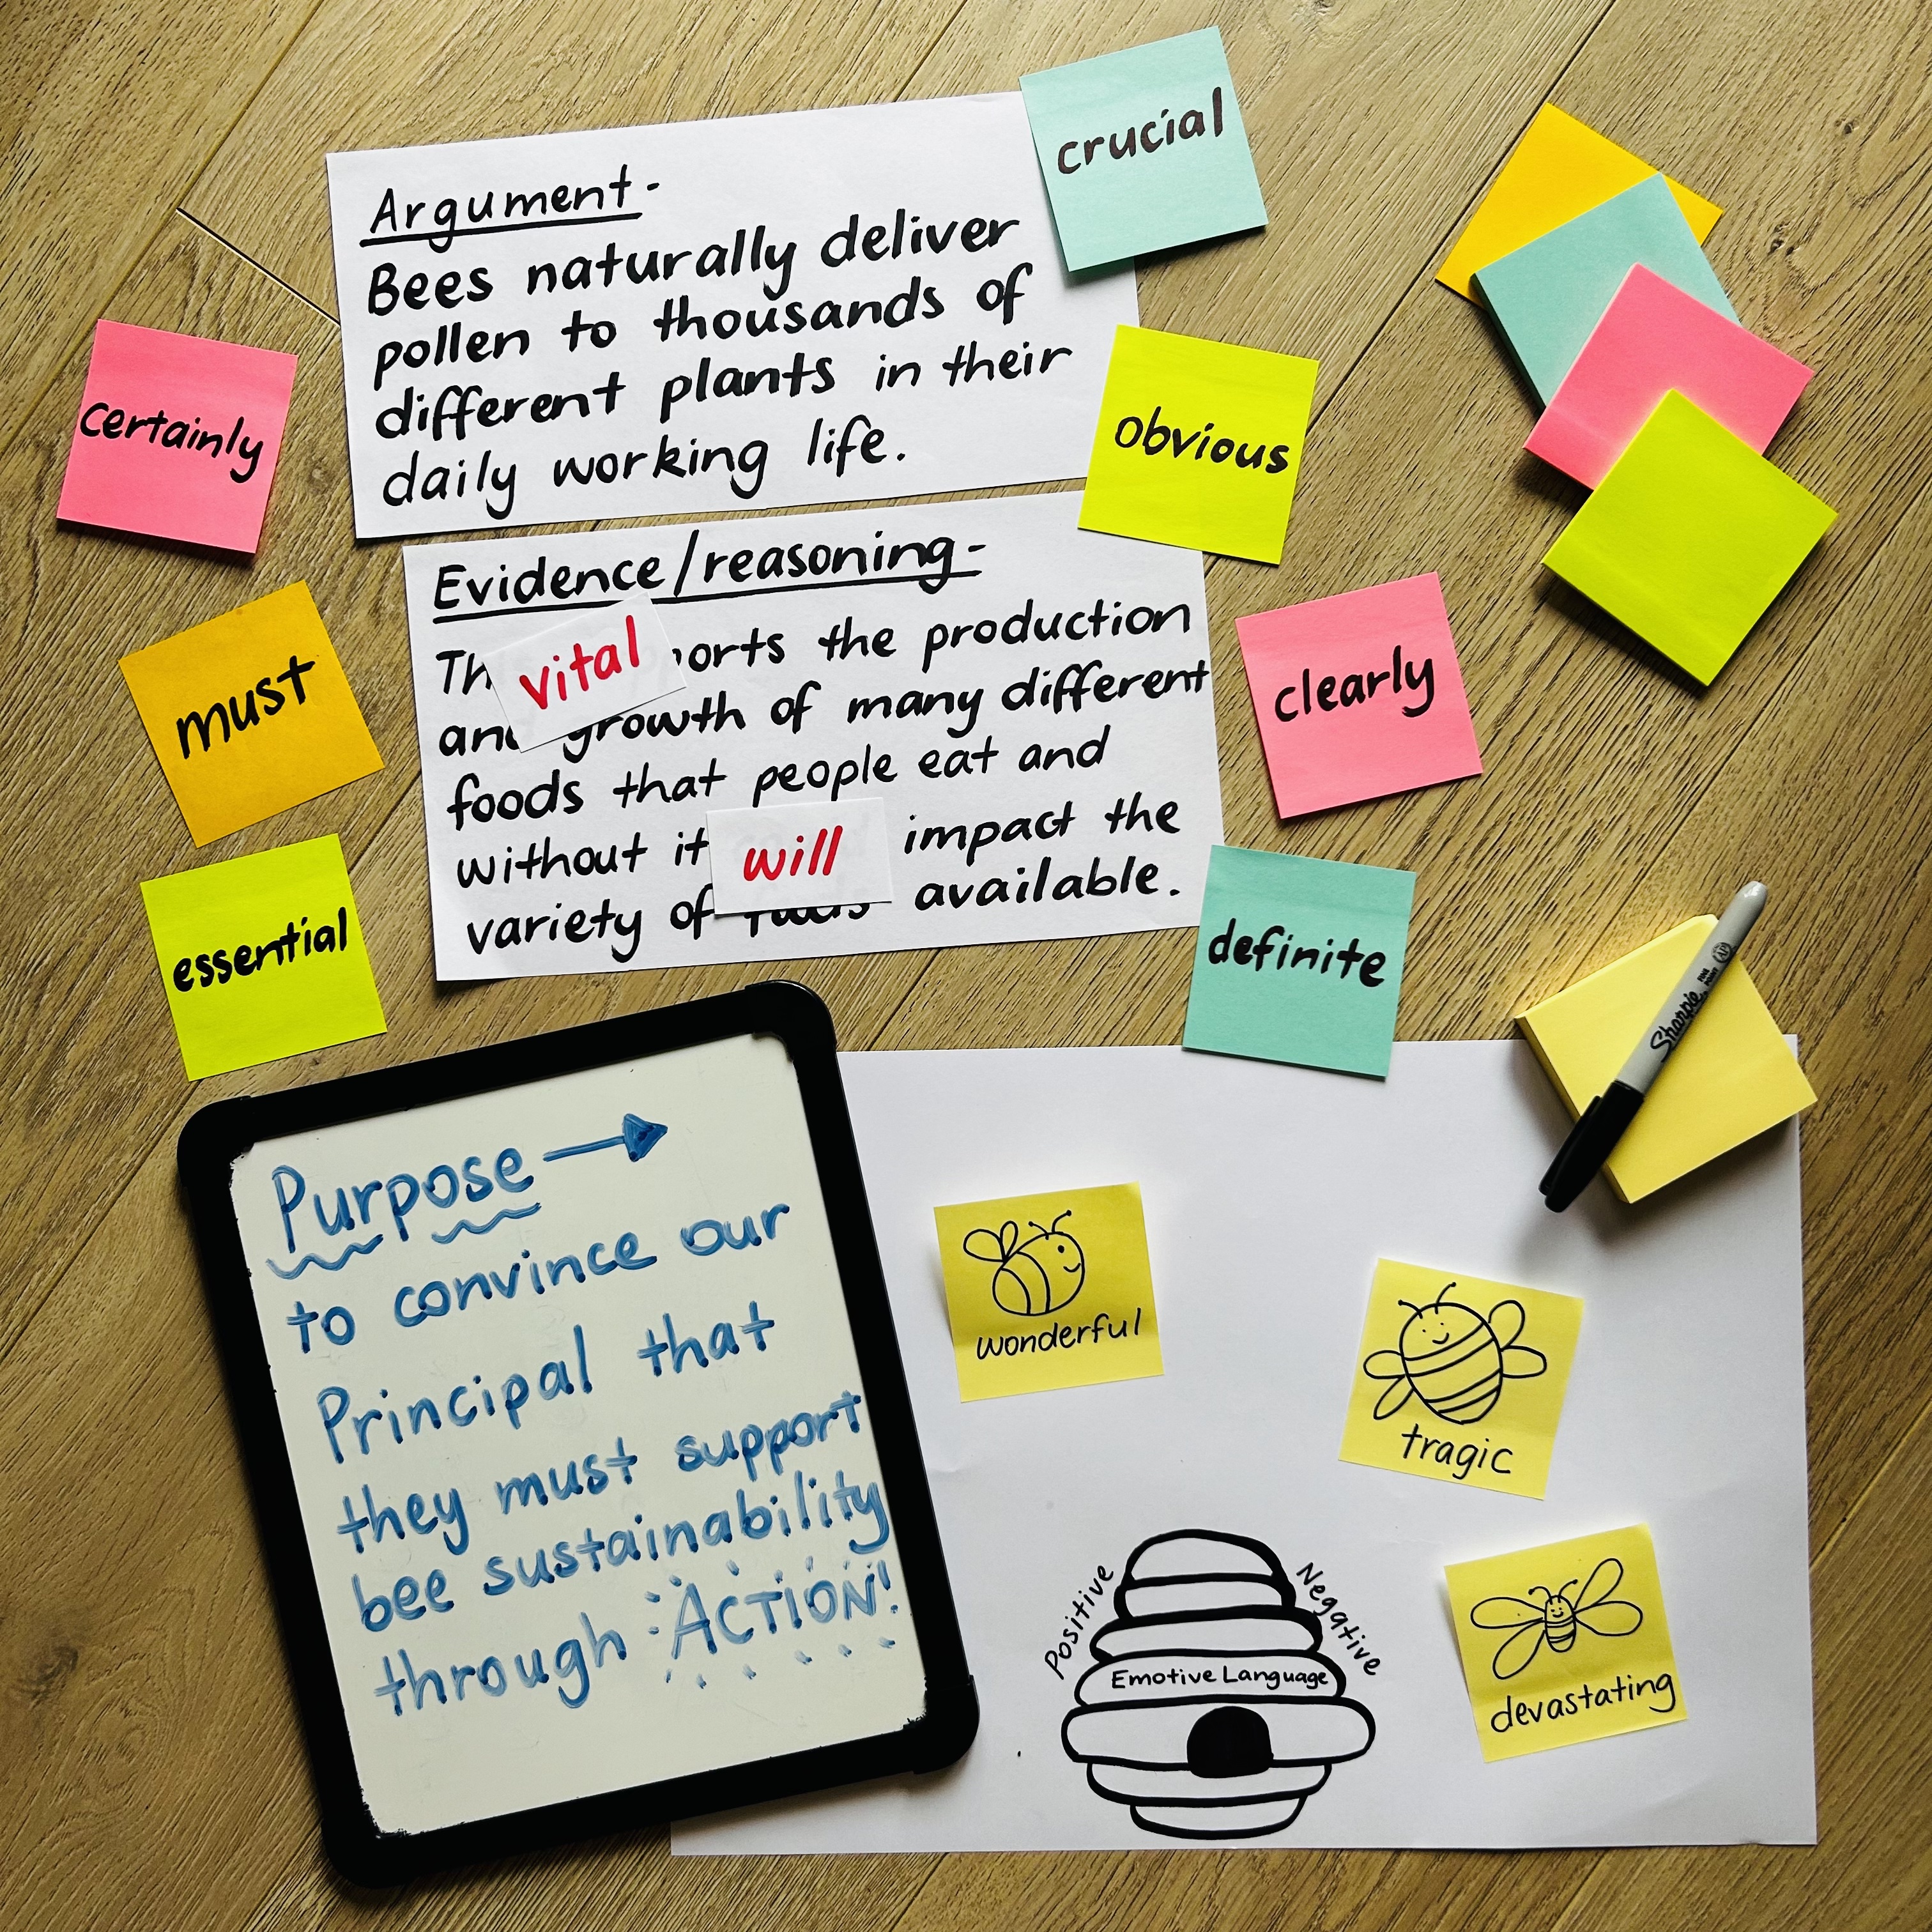 crucial
Argument-
Bees naturally deliver
pollen to thousands of
different plants in their
daily working life.
certainly
obvious
Evidence/reasoning-
vital
the production
growth of many different
foods that people eat and
without it will impact the
variety of available.
must
clearly
essential
definite
Sharpie
Purpose →
to convince our
Principal that
they must support
bee sustainability
through ACTION!
wonderful
tragic
devastating
Positive
Negative
Emotive Language